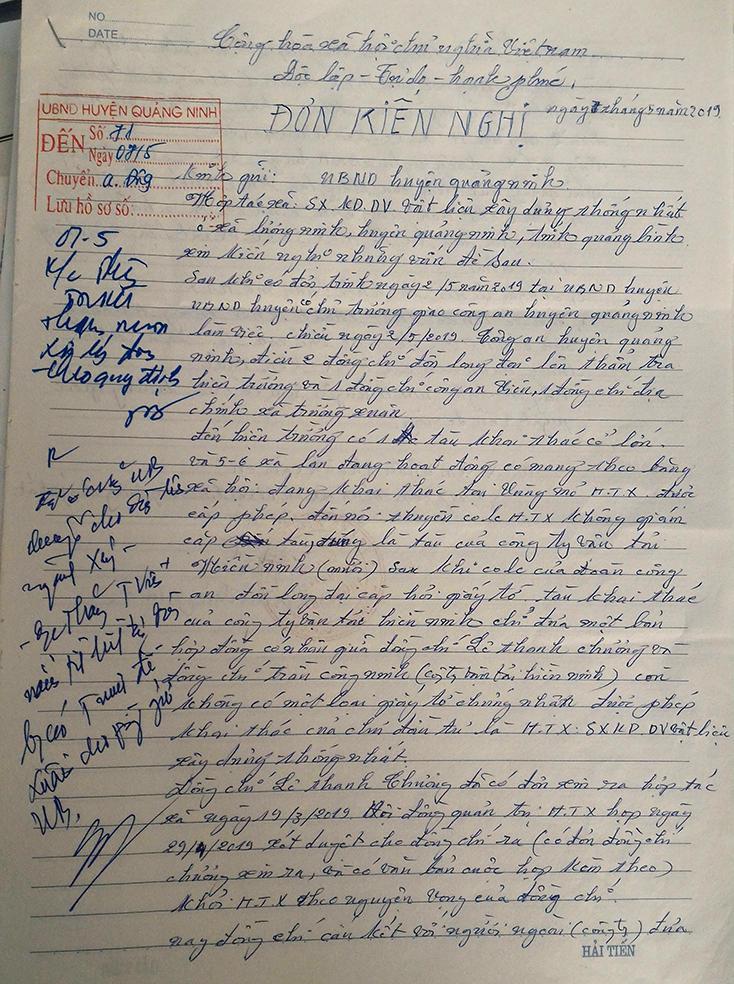 NO
DATE
Cộng hòa xã hội chủ nghĩa Việt nam
Độc lập - Tự do - hạnh phúc,
ngày 7 tháng 5 năm 2019
ĐƠN KIẾN NGHỊ
UBND HUYỆN QUẢNG NINH
ĐẾN
Số: 71
Ngày 08/5
Chuyển: a. Đông
Lưu hồ sơ số:
Kính gửi: UBND huyện quảng ninh.
Hợp tác xã: SX. KD. DV. vật liệu xây dựng thống nhất
ở xã lương ninh, huyện quảng ninh, tỉnh quảng bình.
xin kiến nghị những vấn đề sau.
Sau khi có đơn trình ngày 2/5 năm 2019 tại UBND huyện
UBND huyện có chủ trương giao công an huyện quảng ninh
làm việc. chiều ngày 2/5/2019. Công an huyện quảng
ninh, điều 2 đồng chí đến long đại lên thẩm tra
hiện trường và 1 đồng chí công an viên, 1 đồng chí địa
chính xã trường xuân.
đến hiện trường có 1 tàu khai thác cỡ lớn.
và 5-6 xà lan đang hoạt động có mang theo băng
xã hội đang khai thác tại vùng mỏ H.T.X. được
cấp phép. đến nơi thuyền H.T.X không giám
cấp tàu là tàu của công ty vận tải
Hiền ninh (mười) sau khi của đoàn công
an đồn long đại cặp hỏi giấy tờ tàu khai thác
của công ty vận tải hiền ninh chỉ đưa một bản
hợp đồng cá nhân quả đồng chí Lê thanh chương và
đồng chí trần công ninh (công ty vận tải hiền ninh) còn
không có một loại giấy tờ chứng nhận được phép
khai thác của chủ đầu tư là H.T.X: SX KD. DV vật liệu
xây dựng thống nhất.
Đồng chí Lê thanh Chương đã có đơn xin ra hợp tác
xã ngày 19/3/2019. Hội đồng quản trị H.T.X họp ngày
29/4/2019 xét duyệt cho đồng chí ra (có đơn đồng chí
chương xin ra, và có văn bản cuộc họp kèm theo)
khỏi H.T.X theo nguyện vọng của đồng chí.
nay đồng chí câu kết với người ngoài (công ty) đưa
07-5
theo quy định
UB.
HẢI TIẾN